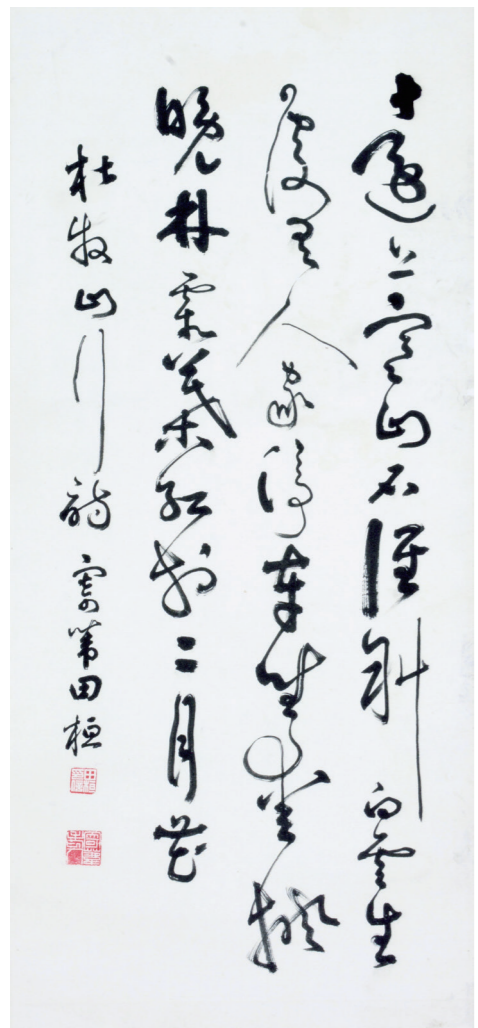 遠上寒山石徑斜白雲生
處有人家停車坐愛楓
晚林霜葉紅於二月花
杜牧山行詩寄葦田桓